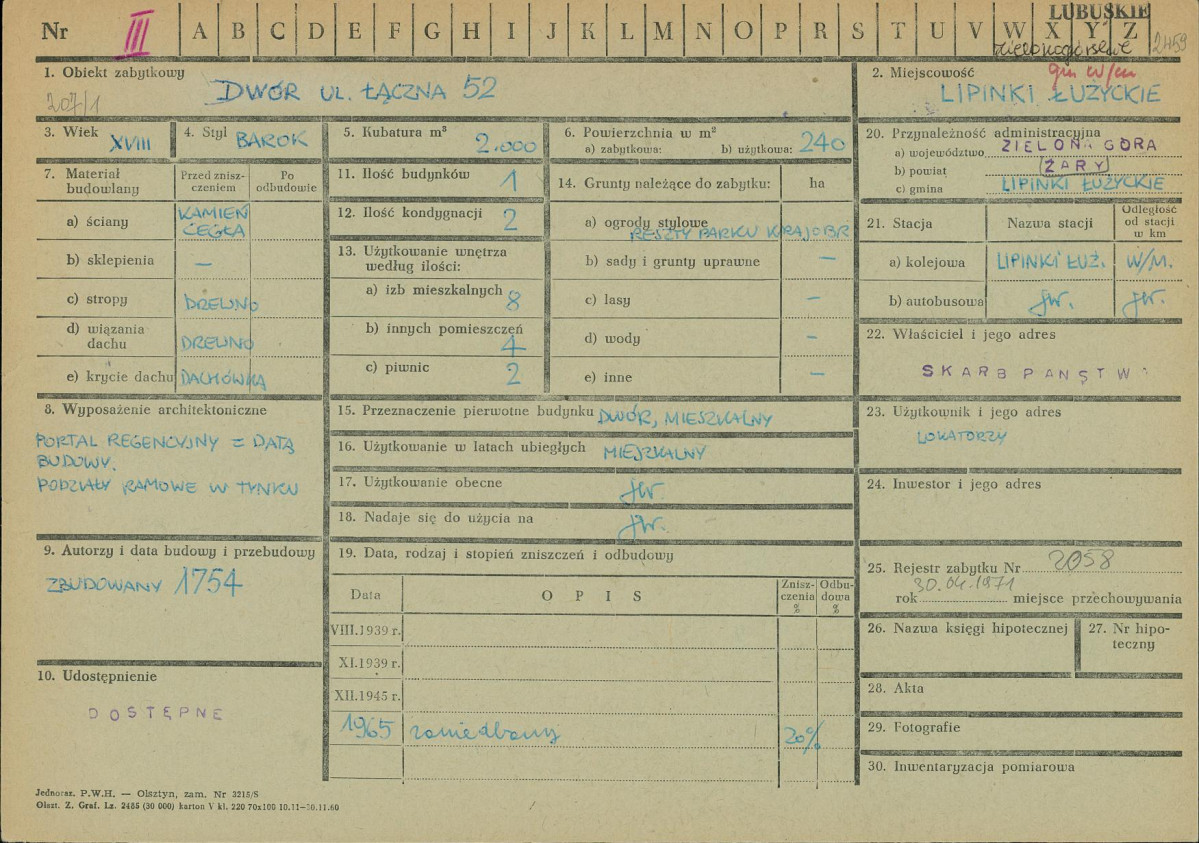 Nr III A B C D E F G H I J K L M N O P R S T U V W X Y Z
LUBUSKIE
zielonogórskie
2459
1. Obiekt zabytkowy
207/1
DWÓR UL. ŁĄCZNA 52
2. Miejscowość
LIPINKI ŁUŻYCKIE
3. Wiek
XVIII
4. Styl
BAROK
5. Kubatura m³
2.000
6. Powierzchnia w m²
a) zabytkowa: b) użytkowa: 240
7. Materiał budowlany
Przed zniszczeniem
Po odbudowie
a) ściany KAMIEŃ
CEGŁA
b) sklepienia —
c) stropy DREWNO
d) wiązania
dachu DREWNO
e) krycie dachu DACHÓWKĄ
8. Wyposażenie architektoniczne
PORTAL REGENCYJNY = DATĄ
BUDOWY.
PODZIAŁY RAMOWE W TYNKU
9. Autorzy i data budowy i przebudowy
ZBUDOWANY 1754
10. Udostępnienie
DOSTĘPNE
11. Ilość budynków 1
12. Ilość kondygnacji 2
13. Użytkowanie wnętrza
według ilości:
a) izb mieszkalnych 8
b) innych pomieszczeń 4
c) piwnic 2
14. Grunty należące do zabytku: ha
a) ogrody stylowe
RESZTY PARKU KRAJOBR
b) sady i grunty uprawne —
c) lasy —
d) wody —
e) inne —
15. Przeznaczenie pierwotne budynku DWÓR, MIESZKALNY
16. Użytkowanie w latach ubiegłych MIESZKALNY
17. Użytkowanie obecne jw.
18. Nadaje się do użycia na jw.
19. Data, rodzaj i stopień zniszczeń i odbudowy
Data
OPIS
Zniszczenia %
Odbudowa %
VIII.1939 r.
XI.1939 r.
XII.1945 r.
1965 zaniedbany 20%
20. Przynależność administracyjna
a) województwo ZIELONA GÓRA
b) powiat ŻARY
c) gmina LIPINKI ŁUŻYCKIE
21. Stacja
Nazwa stacji
Odległość
od stacji
w km
a) kolejowa LIPINKI ŁUŻ. W/M.
b) autobusowa jw. jw.
22. Właściciel i jego adres
SKARB PAŃSTW
23. Użytkownik i jego adres
LOKATORZY
24. Inwestor i jego adres
25. Rejestr zabytku Nr 2058
30.04.1971
rok miejsce przechowywania
26. Nazwa księgi hipotecznej
27. Nr hipo-
teczny
28. Akta
29. Fotografie
30. Inwentaryzacja pomiarowa
Jednoraz. P.W.H. — Olsztyn, zam. Nr 3215/S
Olszt. Z. Graf. Lz. 2485 (30 000) karton V kl. 220 70x100 10.11—30.11.60